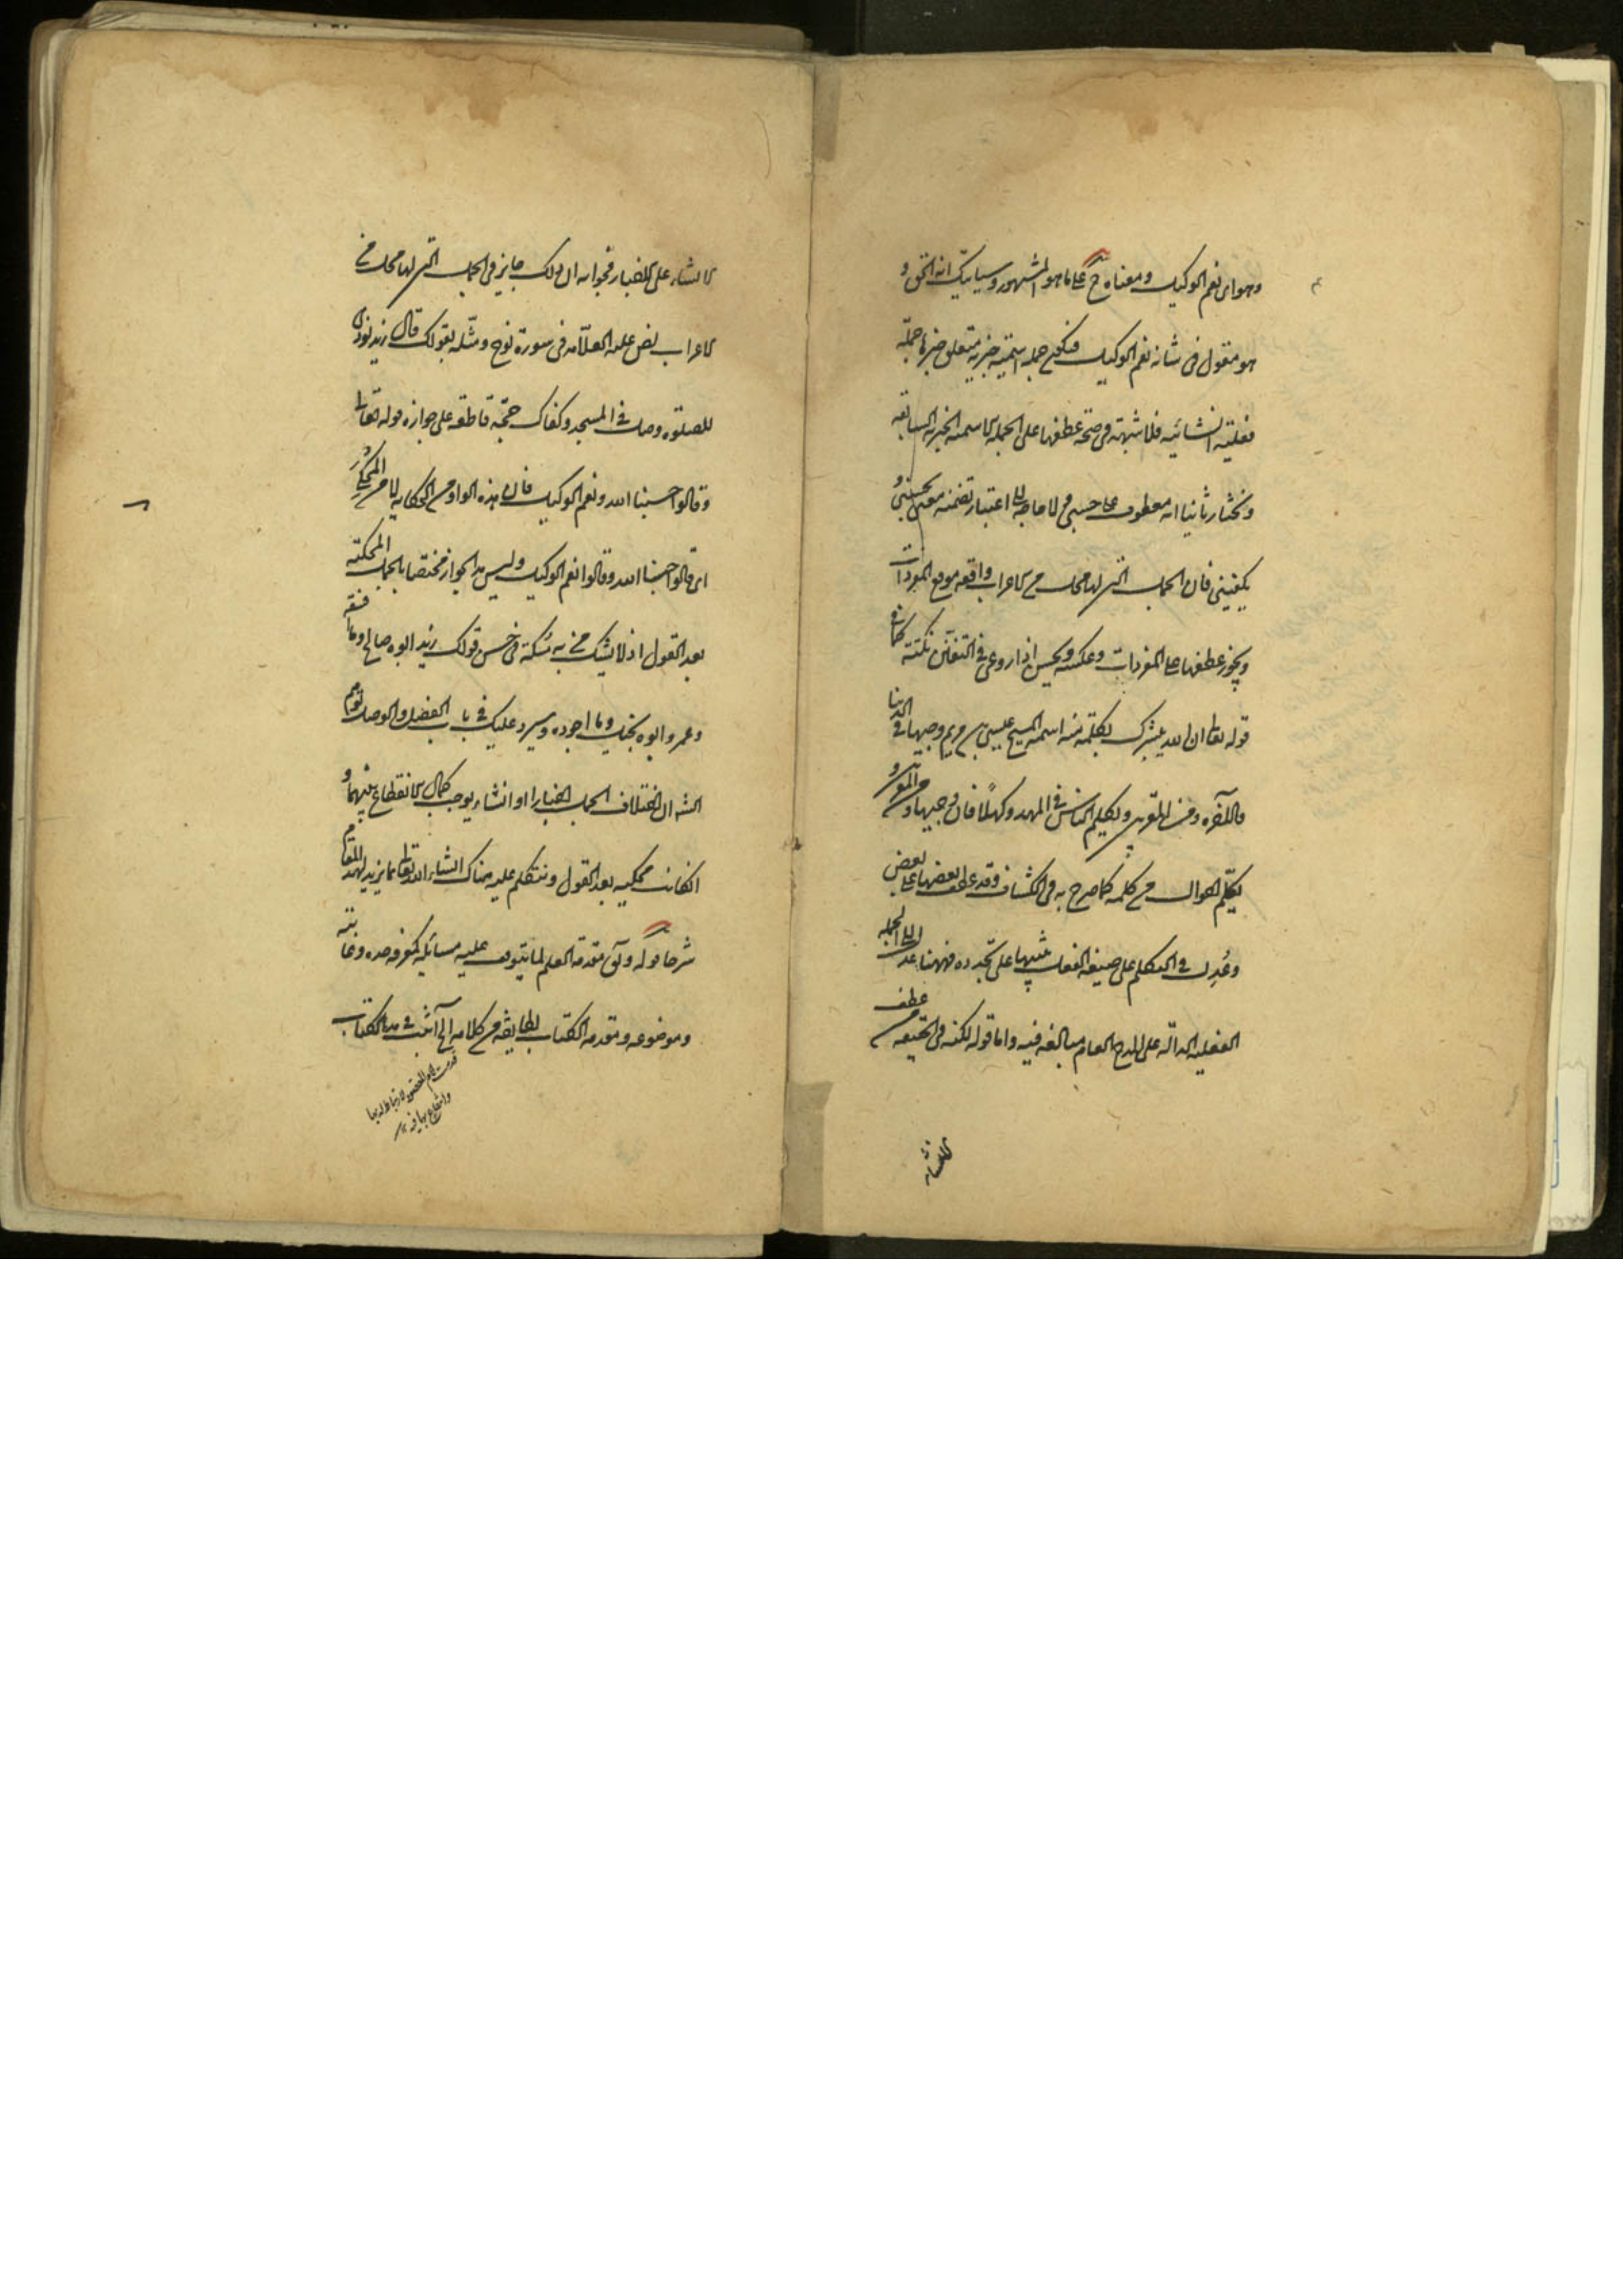 وهو اى نعم الوكيل ومعناه ح على ما هو المشهور وسيأتيك انه الحق و
هو مقول فى شانه نعم الوكيل فيكون جملة اسمية خبرية متعلق خبرها جملة
فعلية انشائية فلا شبهة فى صحة عطفها على الجملة الاسمية الخبرية السابقة
ونختار ثانيا انه معطوف على حسبى ولا حاجة الى اعتبار تضمنه معنى يحسبنى و
يكفينى فان الجمل التى لها محل من الاعراب واقعة موقع المفردات
ويجوز عطفها على المفردات وعكسه ويحسن اذا روعى فى التفنن نكتة كما فى
قوله تعالى ان الله يبشرك بكلمة منه اسمه المسيح عيسى بن مريم وجيها فى الدنيا
والآخرة ومن المقربين ويكلم الناس فى المهد وكهلا فان وجيها ومن المقربين و
يكلم احوال من كلمة كما صرح به فى الكشاف وقد عطف بعضها على بعض
وعدل فى التكلم على صيغة الفعل تنبيها على تجدده فههنا عدل الى الجملة
الفعلية الدالة على المدح العام مبالغة فيه واما قوله لكنه فى الحقيقة من عطف
الانشاء
الانشاء على الاخبار فجوابه ان ذلك جايز فى الجمل التى لها محل من
الاعراب نص عليه العلامة فى سورة نوح ومثله بقولك قال زيد نودى
للصلوة وصل فى المسجد وكفاك حجة قاطعة على جوازه قوله تعالى
وقالوا حسبنا الله ونعم الوكيل فان هذه الواو من الحكاية لا من المحكى
اى قالوا حسبنا الله وقالوا نعم الوكيل وليس هذا الجواز مختصا بالجمل المحكية
بعد القول اذ لا يشك من به مسكة فى حسن قولك زيد ابوه صالح وما افسقه
وعمرو ابوه بخيل وما اجوده وسيرد عليك فى باب الفصل والوصل
ان اختلاف الجمل اخبارا او انشاء يوجب كمال الانقطاع بينهما و
انكانت محكية بعد القول ونتكلم عليه هناك انشاء الله تعالى بما يزيد لهذا المقام
شرحا قوله مقدمة العلم لما يتوقف عليه مسائله كمعرفة حده وغايته
وموضوعه ومقدمة الكتاب لطايفة من كلامه الى آثبت فى هذا الكتاب
قدمت امام المقصود لارتباط له بها
وانتفاع بها فيه